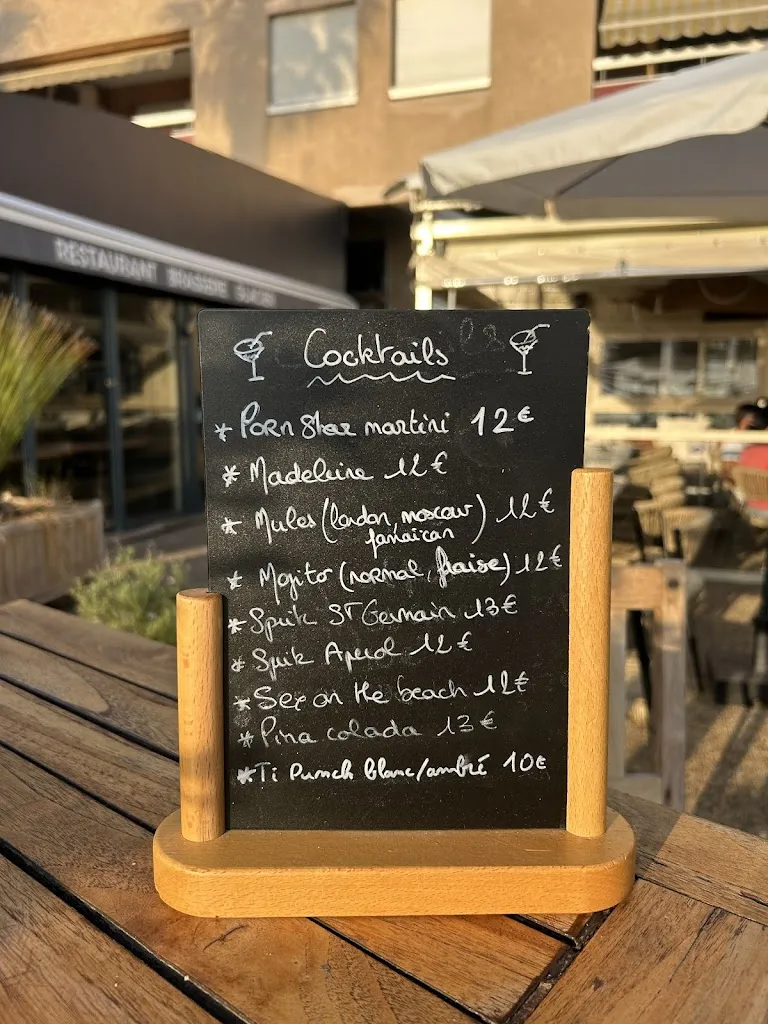 RESTAURANT BRASSERIE GLACIER
Cocktails
* PORN Star martini 12€
* Madeleine 12€
* Mules (London, moscow,
jamaican)
12€
* Mojito (normal, fraise) 12€
* Spritz ST Germain 13€
* Spritz Aperol 12€
* Sex on the beach 12€
* Pina colada 13€
* Ti Punch blanc/ambré 10€